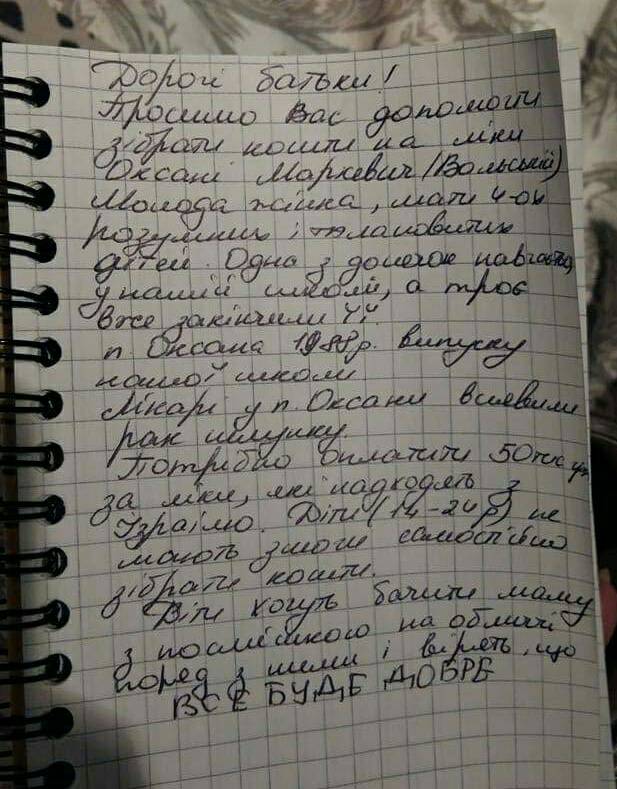 Дорогі батьки!
Просимо Вас допомогти
зібрати кошти на ліки
Оксані Маркевич (Вольській)
Молода жінка, мати 4-ох
розумних і талановитих
дітей. Одна з дочок навчається
у нашій школі, а троє
вже закінчили її.
п. Оксана 1988р. випуску
нашої школи
Лікарі у п. Оксани виявили
рак шлунку.
Потрібно оплатити 50 тис грн
за ліки, які надходять з
Ізраїлю. Діти (14-24р) не
мають змоги самостійно
зібрати кошти.
Діти хочуть бачити маму
з посмішкою на обличчі
поряд з ними і вірять, що
ВСЕ БУДЕ ДОБРЕ